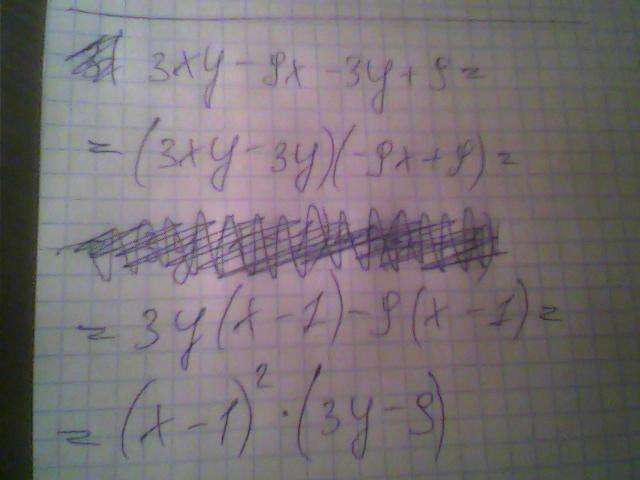 3xy - 9x - 3y + 9 =
= (3xy - 3y)(-9x + 9) =
= 3y(x - 1) - 9(x - 1) =
= (x - 1)² · (3y - 9)